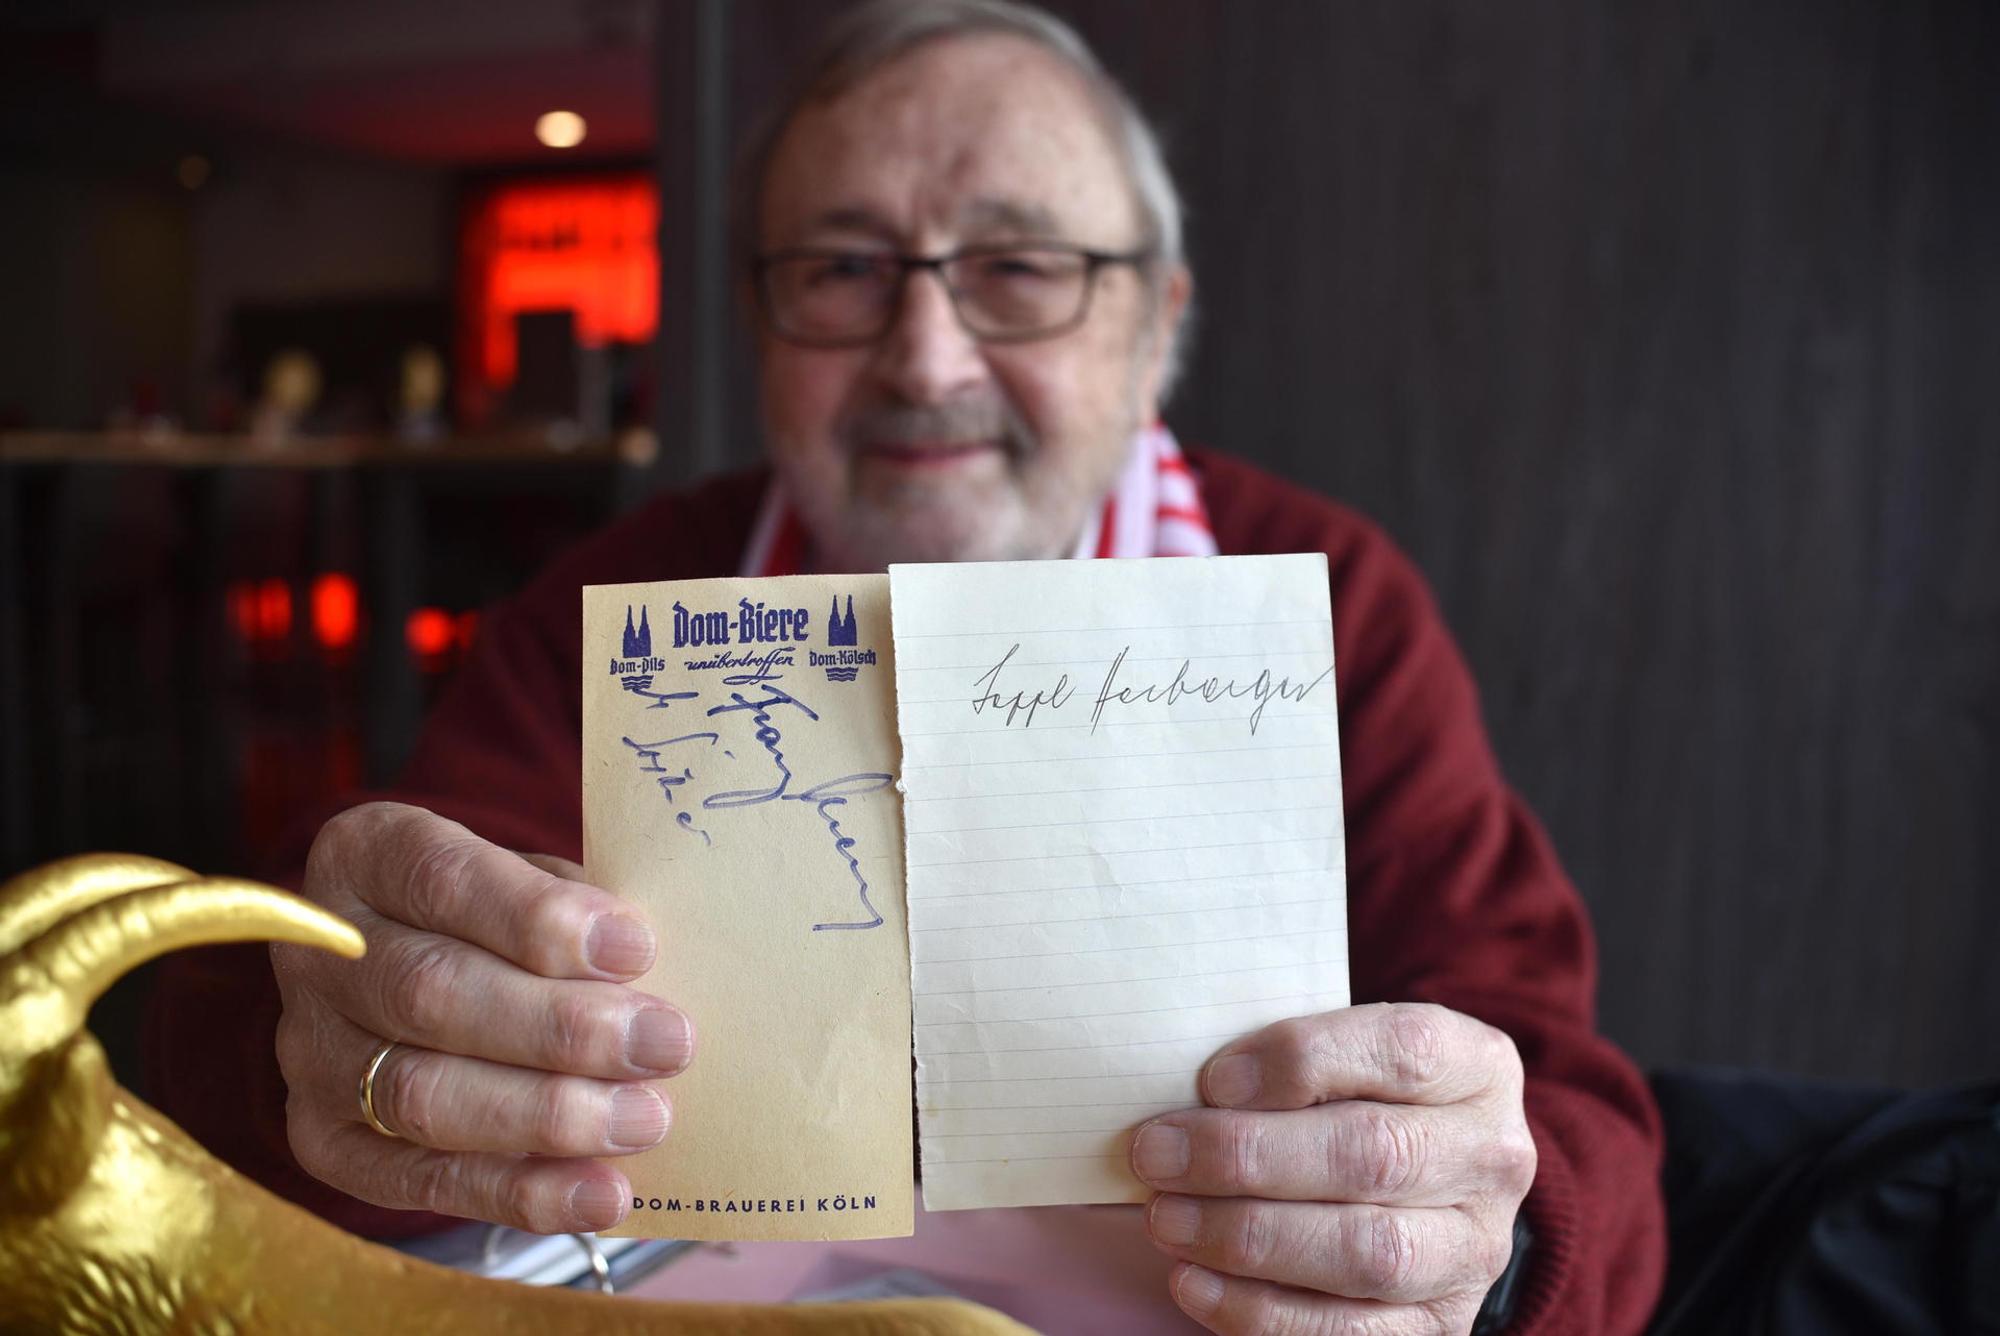 Dom-Biere
Dom-Pils unübertroffen Dom-Kölsch
Franz
DOM-BRAUEREI KÖLN
Seppl Herberger